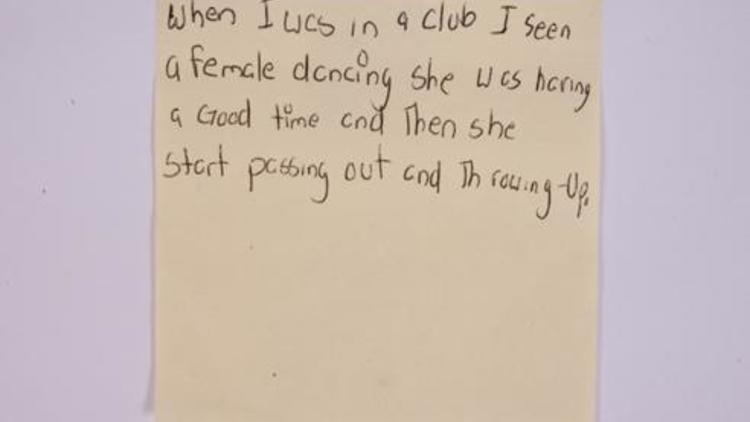 When I was in a club I seen
a female dancing she was having
a Good time and Then she
start passing out and Throwing-Up.